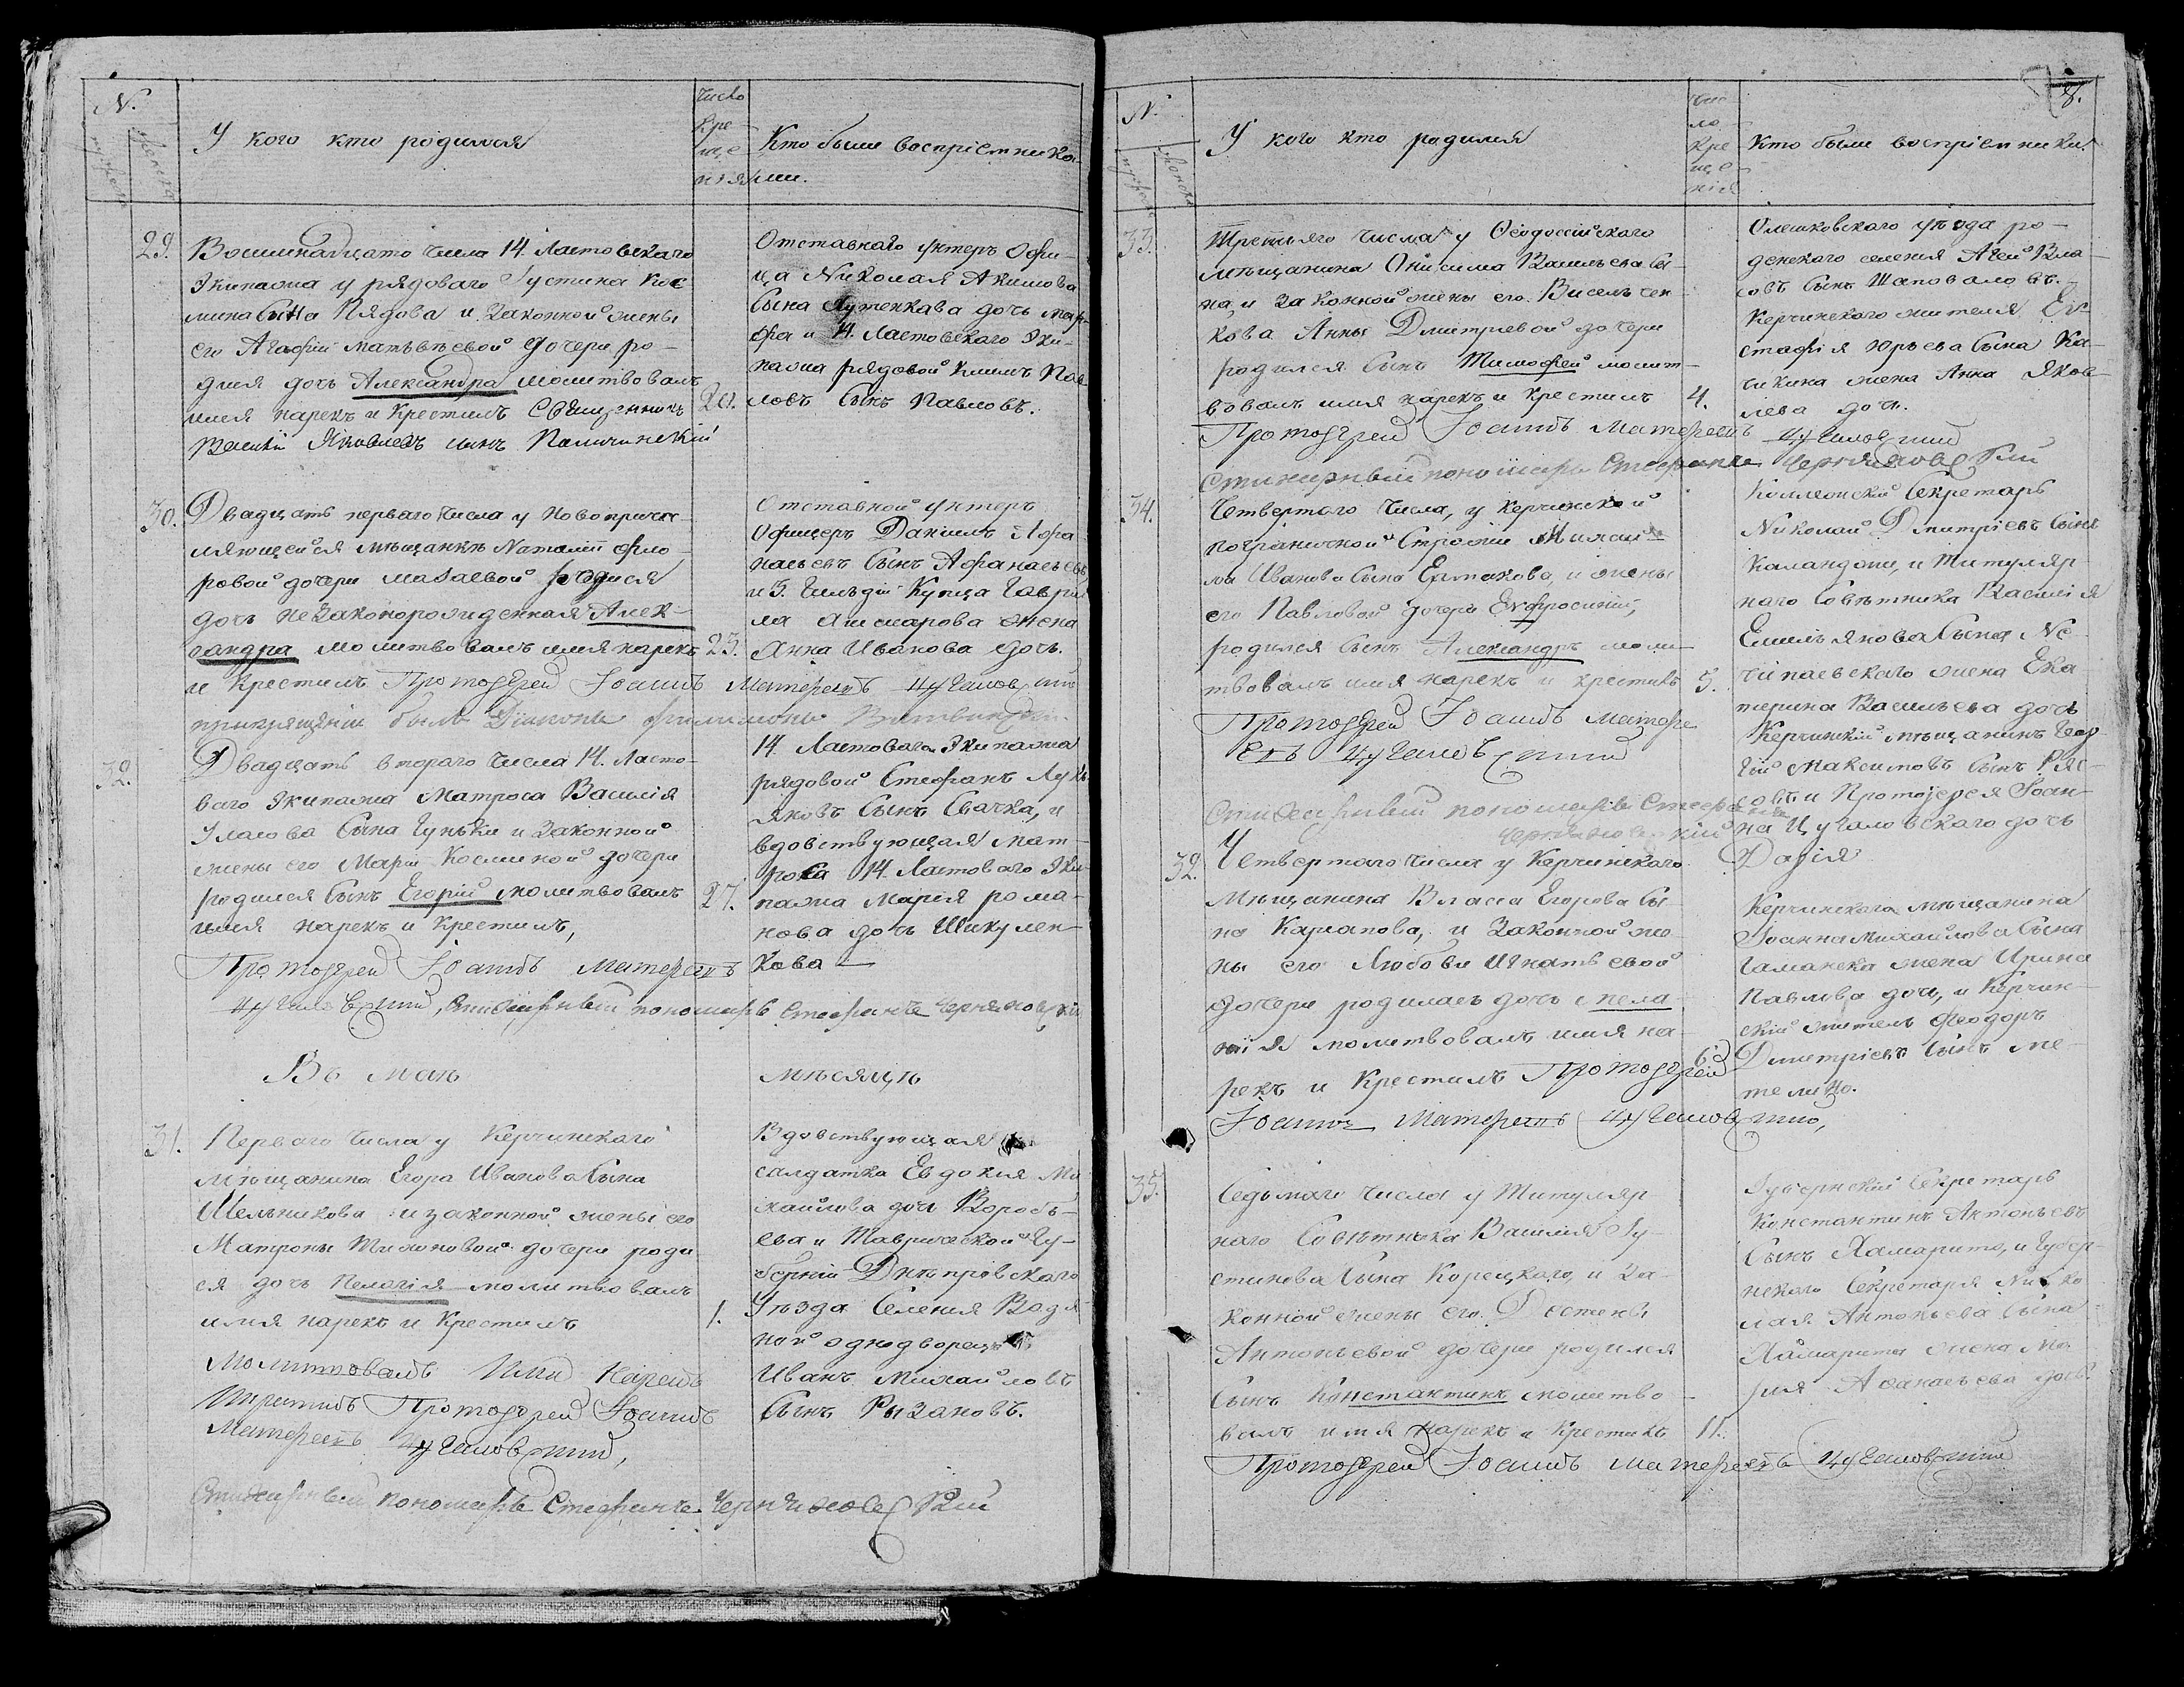 N.
мужеска
женска
У кого кто родился
число
Кре
ще
нія
Кто были воспріемника
ми.
29.
Восминадцато числа 14. Ластовскаго
Экипажа у рядоваго Густина Кос
мина сына Пядова и законной жены
его Агафіи Матвѣевой дочери ро-
дися дочь Александра молитвовалъ
имя нарекъ и крестилъ Священникъ
Василій Яковлевъ сынъ
20.
Отставнаго унтеръ Офи-
ца Николая Акимова
сына Луценкава дочь Мар-
фа и 14. Ластовскаго Эки-
пажа рядовой Климъ Пав
ловъ сынъ Павловъ.
30.
Двадцать перваго числа у новопричи-
сляющейся мѣщанкѣ Наталіи Фло-
ровой дочери Мазаевой родися
дочь незаконорожденная Алек-
сандра молитвовалъ имя нарекъ
и крестилъ Протоіерей Іоаннъ Матереевъ Цугаловскій
при крещеніи былъ Діаконъ Филимонъ
23.
Отставной унтеръ
Офицеръ Даниилъ Афа
насьевъ сынъ Афанасьевъ
и 3. Гильдіи Купца Гаври
ла Ашмарова жена
Анна Иванова дочь.
32.
Двадцать втораго числа 14. Ласто-
ваго Экипажа матроса Василія
Уласова сына Гуньки и законной
жены его Маріи Косминой дочери
родился сынъ Егорій молитвовалъ
имя нарекъ и крестилъ,
Протоіерей Іоаннъ Матереевъ
Цугаловскій, Стихарный пономарь Стефанъ Черняховскій
27.
14 Ластоваго Экипажа
рядовой Стефанъ Лукь
яновъ сынъ Свачка, и
вдовствующая мат-
роса 14. Ластоваго Эки
пажа Марія рома-
нова дочь Шикулен-
кова
Въ маѣ мѣсяцѣ
31.
Перваго числа у Керчинскаго
мѣщанина Егора Иванова сына
Мельникова и законной жены его
Матроны Тихоновой дочери роди
ся дочь Пелагія молитвовалъ
имя нарекъ и крестилъ
Молитвовалъ имя нарекъ
и крестилъ Протоіерей Іоаннъ
Матереевъ Цугаловскій,
Стихарный пономарь Стефанъ Черняховскій
1.
Вдовствующая
салдатка Евдокия Ми
хайлова дочь Воробь-
ева и Таврической Гу-
берніи Днѣпровскаго
Уѣзда Селения Водя-
ной однодворецъ
Иванъ Михайловъ
сынъ Рызановъ.
8.
N.
мужеска
женска
У кого кто родился
чис
ло
кре
ще
нія
Кто были воспріемники.
33.
Третьяго числа у Ѳеодоссійскаго
мѣщанина Онисима Васильева сы-
на и законной жены его Висельчен
кова Анны Дмитриевой дочери
родился сынъ Тимофей молит-
вовалъ имя нарекъ и крестилъ
Протоіерей Іоаннъ Матереевъ Цугаловскій
Стихарный пономарь Стефанъ Черняховскій
4.
Олешковского уѣзда ро-
денского селения Агей Вла-
совъ сынъ Шаповаловъ.
Керчинскаго жителя Ев-
стафія Юрьева сына Ка-
чикина жена Анна Яков-
лева дочь.
34.
Четвертаго числа, у керчинской
пограничной Стражи Михаи-
ла Иванова сына Ермакова, и жены
его Павловой дочери Евфросиніи,
родился сынъ Александръ моли-
твовалъ имя нарекъ и крестилъ
Протоіерей Іоаннъ Матере
евъ Цугаловскій
Стихарный пономарь Стефанъ
Черняховскій
5.
Коллежскій Секретарь
Николай Дмитріевъ сынъ
Каландони, и Титуляр-
наго Совѣтника Василія
Емильянова сына Не
чипаевскаго жена Ека-
терина Васильева дочь
Керчинскій мѣщанинъ Геор
гій Максимовъ сынъ
и Протоіерея Іоан-
на Цугаловскаго дочь
Дарія
32.
Четвертаго числа у Керчинскаго
Мѣщанина Власа Егорова сы-
на Карлапова, и Законной же-
ны его Любови Игнатьевой
дочери родилась дочь Мела-
нія молитвовалъ имя на-
рекъ и крестилъ Протоіерей
Іоаннъ Матереевъ Цугаловскій,
6
Керчинскаго мѣщанина
Іоанна Михайлова сына
Гаманска жена Ирина
Павлова дочь, и Керчин-
скій житель Феодоръ
Дмитріевъ сынъ Ме-
телино.
35.
Седьмаго числа у Титуляр
наго Совѣтника Василія Гу-
стинова сына Корецкаго, и За-
конной жены его Достены
Антоньевой дочери родился
сынъ Константинъ молитво-
валъ имя нарекъ и крестилъ
Протоіерей Іоаннъ Матереевъ Цугаловскій
11.
Губернскій Секретарь
Константинъ Антоньевъ
сынъ Хамарито, и Губер-
нскаго Секретаря Нико
лая Антоньева сына
Хамарита жена Ма
рия Афанасьева дочь.